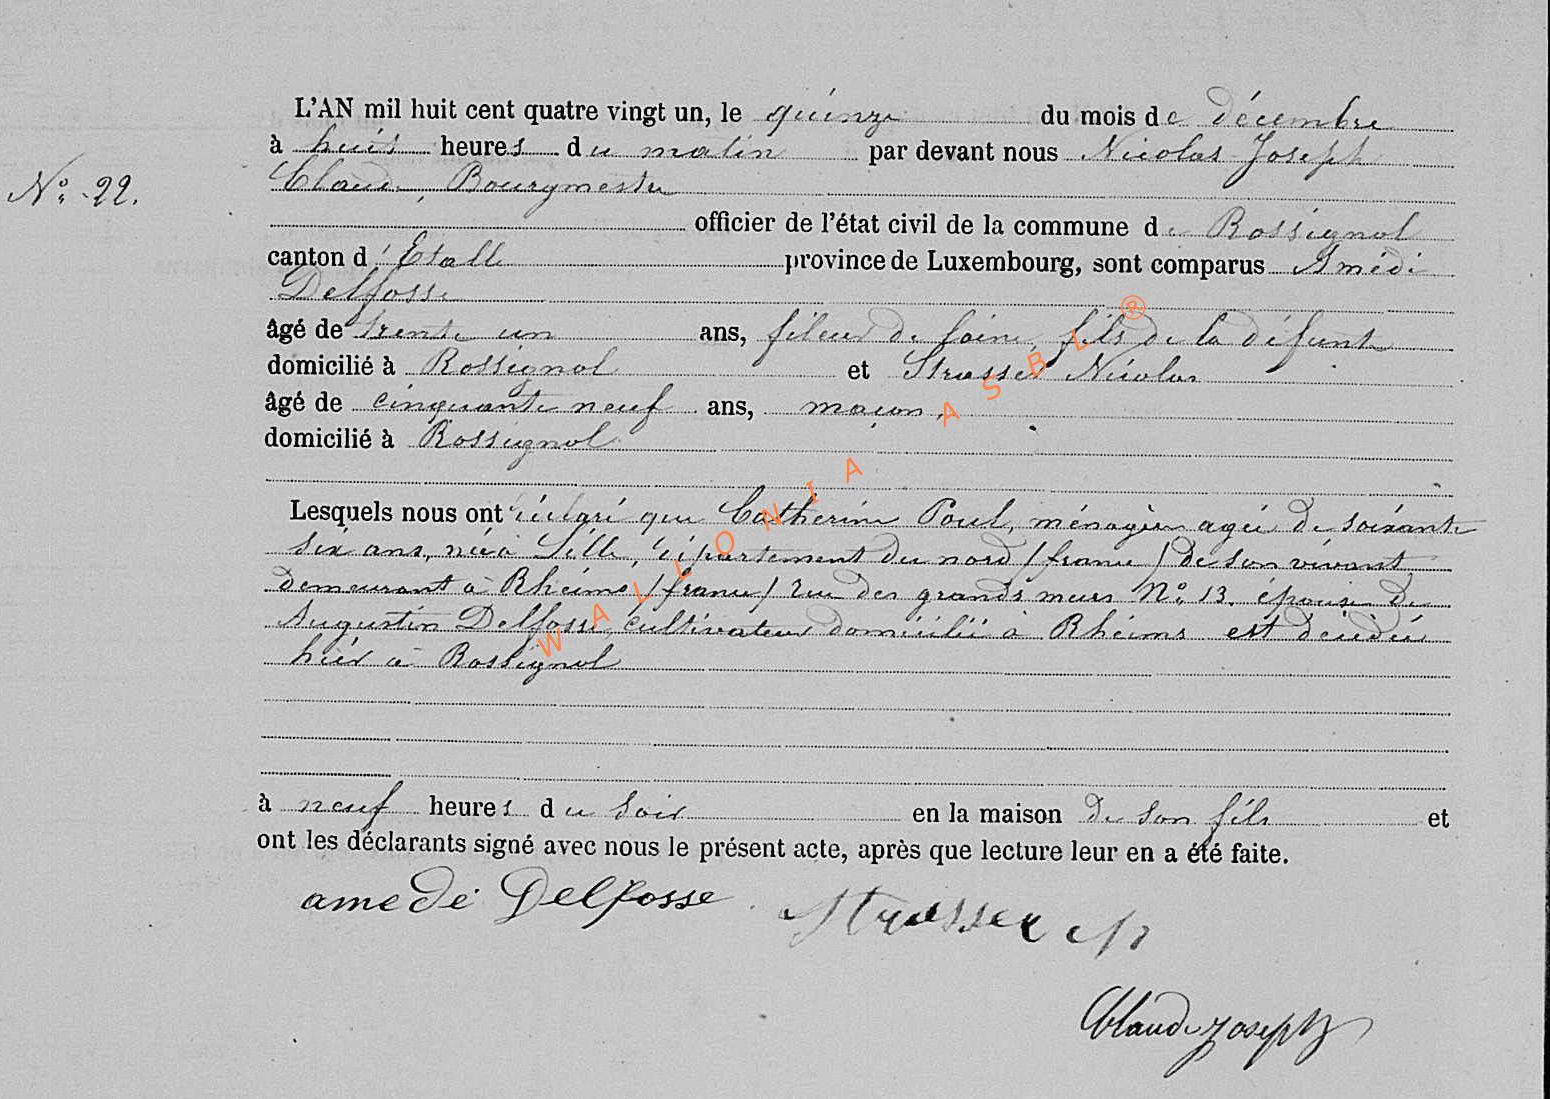 L'AN mil huit cent quatre vingt un, le quinze du mois de décembre
à huit heures du matin par devant nous Nicolas Joseph
Claude, Bourgmestre
N° 22.
officier de l'état civil de la commune de Rossignol
canton d'Etalle province de Luxembourg, sont comparus Amédé
Delfosse
âgé de trente un ans, fileur de laine, fils de la défunte
domicilié à Rossignol et Strasser Nicolas
âgé de cinquante neuf ans, maçon,
domicilié à Rossignol
Lesquels nous ont déclaré que Catherine Poul, ménagère agée de soixante
six ans, née à Lille, département du nord /france/ de son vivant
demeurant à Rheims /france/ rue des grands murs N° 13. épouse de
Augustin Delfosse, cultivateur domicilié à Rheims est décédée
hier à Rossignol
à neuf heures du soir en la maison de son fils et
ont les déclarants signé avec nous le présent acte, après que lecture leur en a été faite.
amedé Delfosse. Strasser N
Claude Joseph
WALLONIA ASBL ®